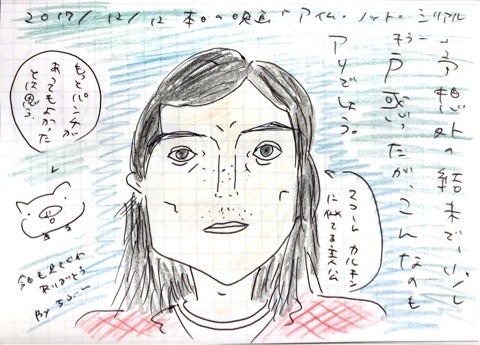 2017/12/12 本日の映画「アイム・ノット・シリアル
予想外の結末で、少し
戸惑ったが、こんなのも
アリでしょう。
もっとパンチが
あってもよかった
とは思う。
マコーレ カルキン
に似てる主人公
今日も見てくれ
ありがとう
By